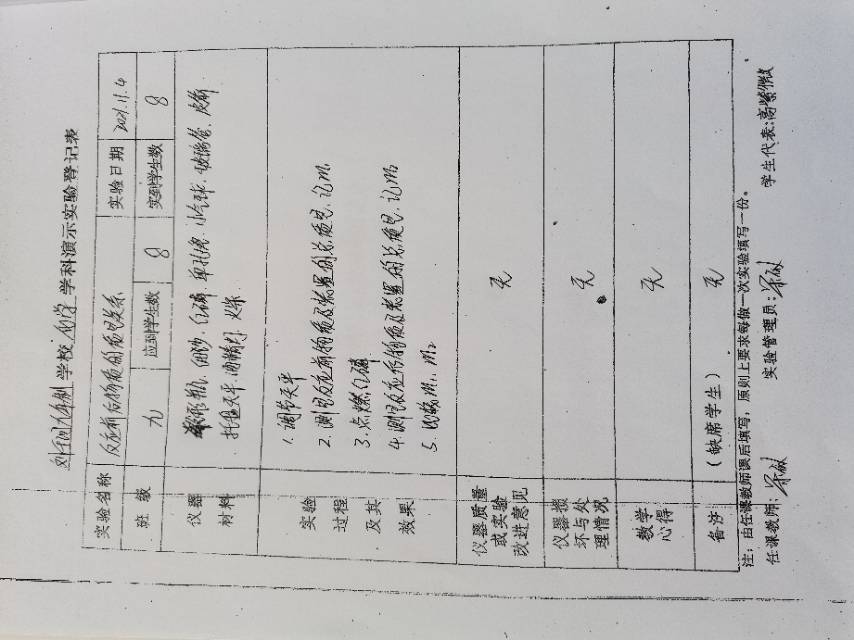 学校 化学 学科演示实验登记表
实验名称 反应前后物质的质量关系 实验日期 2021.11.4
班级 九 应到学生数 8 实到学生数 8
仪器 锥形瓶、细沙、红磷、单孔塞、小气球、玻璃管、胶塞
材料 托盘天平、酒精灯
实验 1. 调节天平
过程 2. 测量反应前物质及装置的总质量,记m1
及其 3. 点燃红磷
效果 4. 测量反应后物质及装置的总质量,记m2
5. 比较m1、m2
仪器质量
或实验
改进意见 无
仪器损
坏与处
理情况 无
教学
心得 无
备注 (缺席学生) 无
注:由任课教师课后填写,原则上要求每做一次实验填写一份。
任课教师: 实验管理员: 学生代表:高紫微